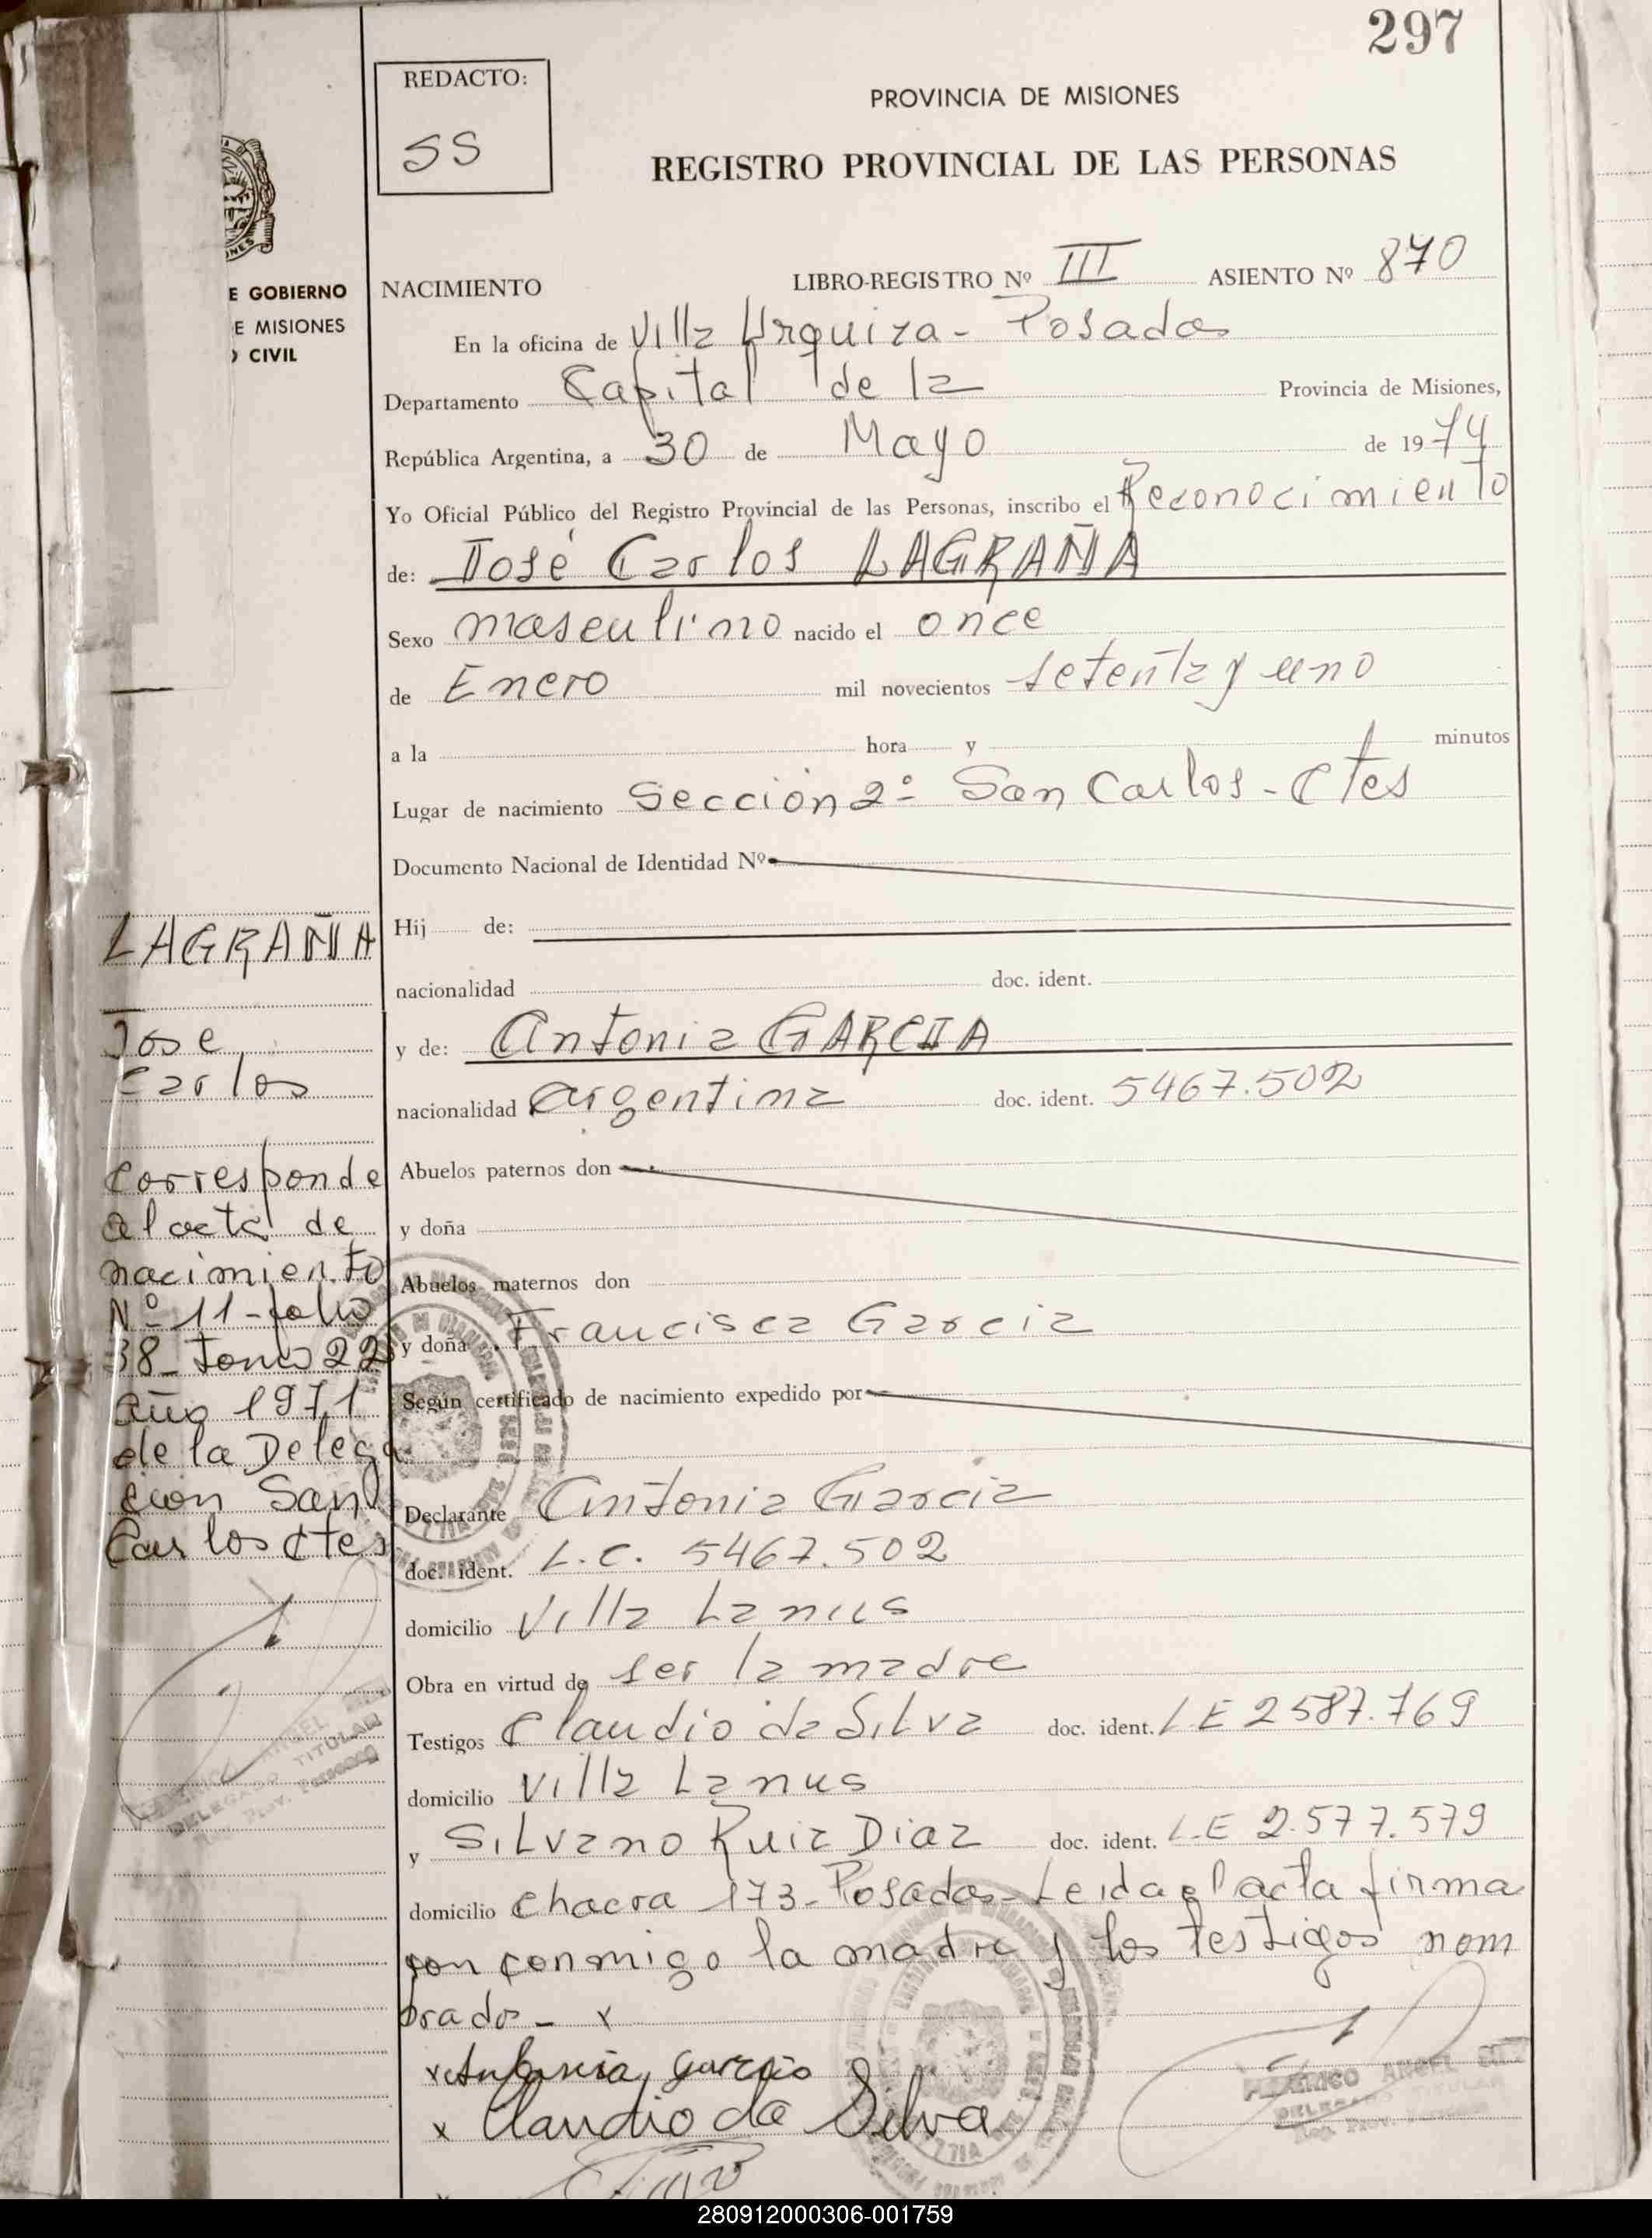 297
REDACTO:
SS
PROVINCIA DE MISIONES
REGISTRO PROVINCIAL DE LAS PERSONAS
E GOBIERNO
E MISIONES
CIVIL
NACIMIENTO LIBRO-REGISTRO Nº III ASIENTO Nº 870
En la oficina de Villa Urquiza - Posadas
Departamento Capital de la Provincia de Misiones,
República Argentina, a 30 de Mayo de 1974
Yo Oficial Público del Registro Provincial de las Personas, inscribo el Reconocimiento
de: José Carlos LAGRAÑA
Sexo masculino nacido el once
de Enero mil novecientos setenta y uno
a la hora y minutos
Lugar de nacimiento Sección 2º San Carlos - Ctes
Documento Nacional de Identidad Nº
Hij de:
nacionalidad doc. ident.
y de: Antonia GARCIA
nacionalidad argentina doc. ident. 5467.502
Abuelos paternos don
y doña
Abuelos maternos don
y doña Francisca Garcia
Según certificado de nacimiento expedido por
Declarante Antonia Garcia
doc. ident. L.C. 5467.502
domicilio Villa Lanus
Obra en virtud de ser la madre
Testigos Claudio da Silva doc. ident. LE 2587.769
domicilio Villa Lanus
y Silvano Ruiz Diaz doc. ident. L.E 2.577.579
domicilio Chacra 173 - Posadas - Leida el acta firma
con conmigo la madre y los testigos nom
brados - x
x Antonia Garcia
x Claudio da Silva
LAGRAÑA
Jose
Carlos
Corresponde
al acta de
nacimiento
Nº 11 - folio
38 - Tomo 22
Año 1971
de la Delega
cion San
Carlos Ctes
ANGEL
DELEGADO TITULAR
Reg. Prov. Personas
ANGEL
DELEGADO TITULAR
Reg. Prov. Personas
280912000306-001759